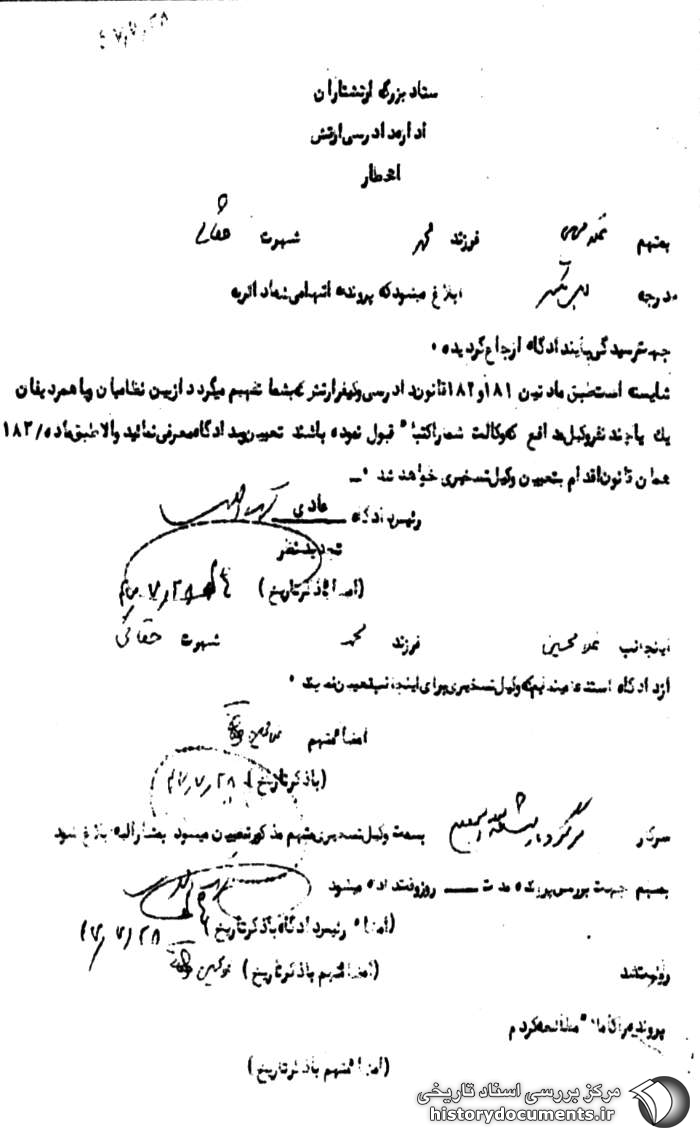 ۴۷٫۷٫۲۸
ستاد بزرگ ارتشتاران
اداره دادرسی ارتش
اخطار
بمتهم غلامحسین فرزند محمد شهرت حقانی
درجه ابلاغ میشود که پرونده اتهامی شما دائر به
جهت رسیدگی باین دادگاه ارجاع گردیده ۰
شایسته است طبق مادتین ۱۸۱ و ۱۸۲ قانون دادرسی و کیفر ارتش که بشما تفهیم میگردد از بین نظامیان و یا همردیفان
یک یا چند نفر وکیل مدافع که وکالت شما را کتبا" قبول نموده باشند تعیین و بدادگاه معرفی نمائید والا طبق ماده ۱۸۳/
همان قانون اقدام بتعیین وکیل تسخیری خواهد شد ۰ـ
رئیس دادگاه عادی
تجدید نظر
(امضا با ذکر تاریخ) ۲۸٫۷٫
اینجانب غلامحسین فرزند محمد شهرت حقانی
از دادگاه استدعا مینمایم که وکیل تسخیری برای اینجانب تعیین نمایند ۰
امضا متهم
(با ذکر تاریخ) ۴۷٫۷٫۲۸
سرکار سرگرد بسمت وکیل تسخیری متهم مذکور تعیین میشود بمشارالیه ابلاغ شود
بمتهم جهت بررسی پرونده مدت ــــ روز وقت داده میشود
(امضاء رئیس دادگاه با ذکر تاریخ) ۴۷٫۷٫۲۸
رؤیت شد (امضا متهم با ذکر تاریخ)
پرونده را کاملا" مطالعه کردم
(امضا متهم با ذکر تاریخ)
مرکز بررسی اسناد تاریخی
historydocuments.ir